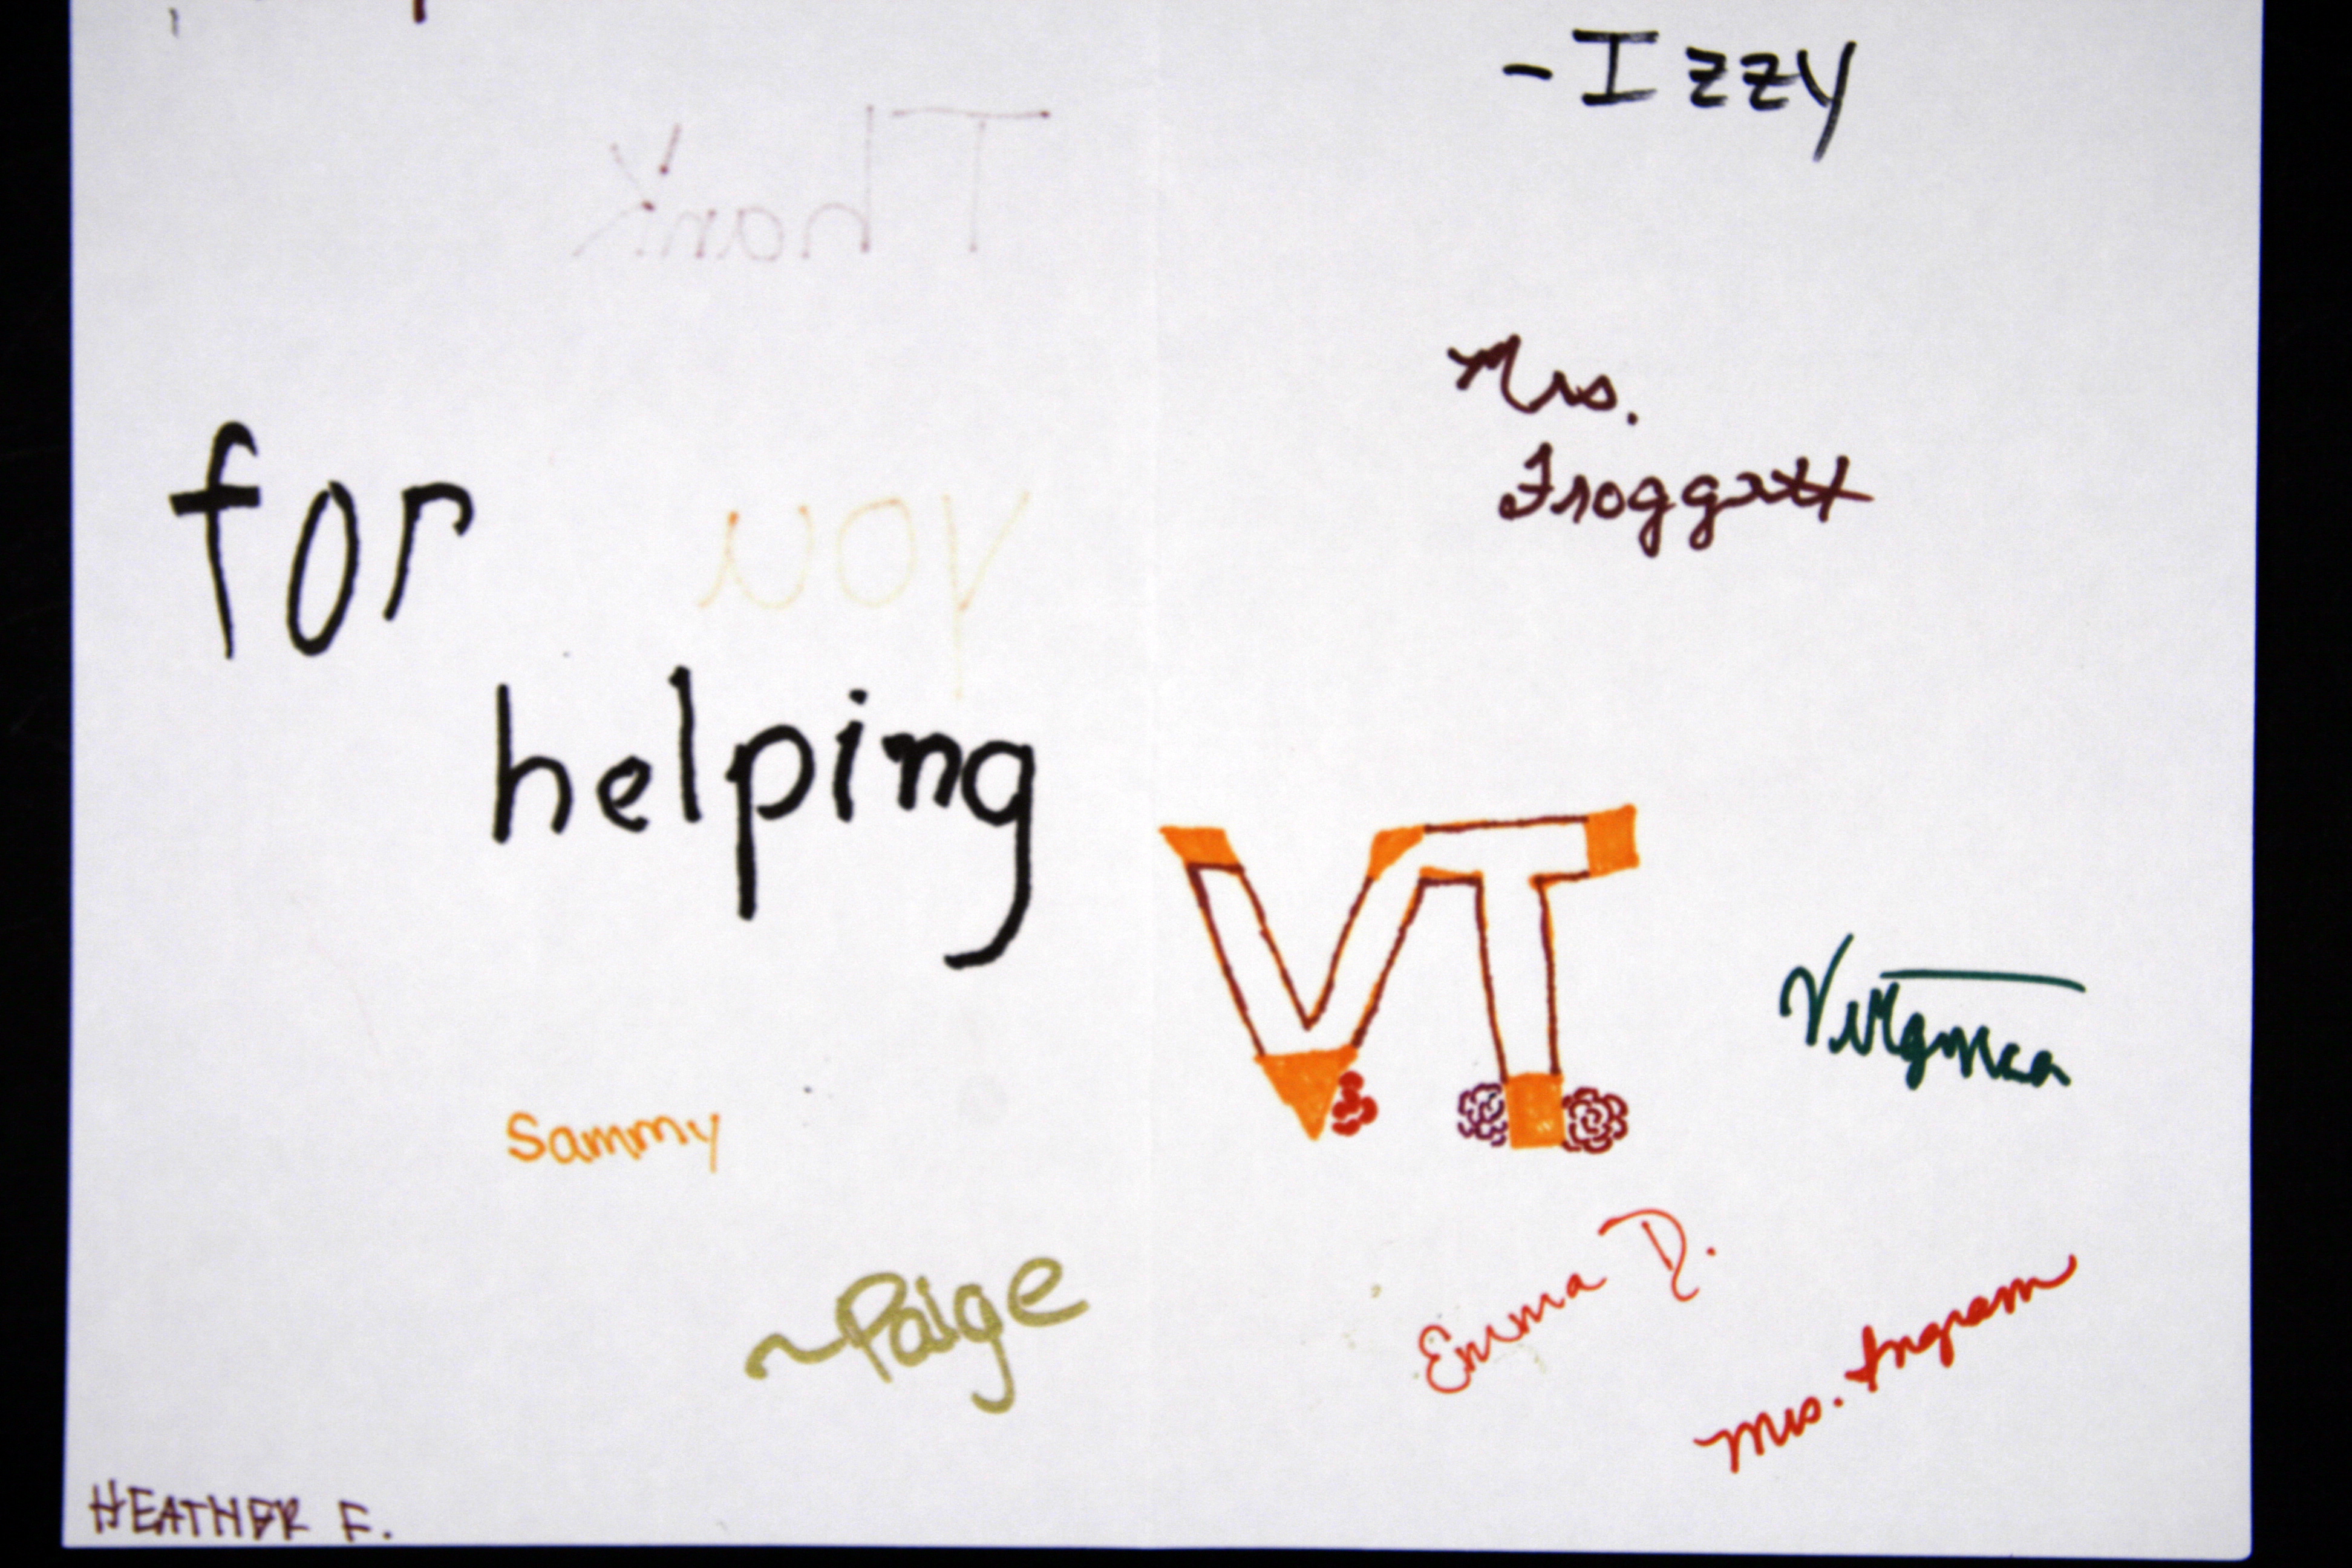 - Izzy
Thank
Mrs.
Froggatt
for
you
helping
VT
Virginia
Sammy
~Paige
Emma D.
Mrs. Ingram
HEATHER F.